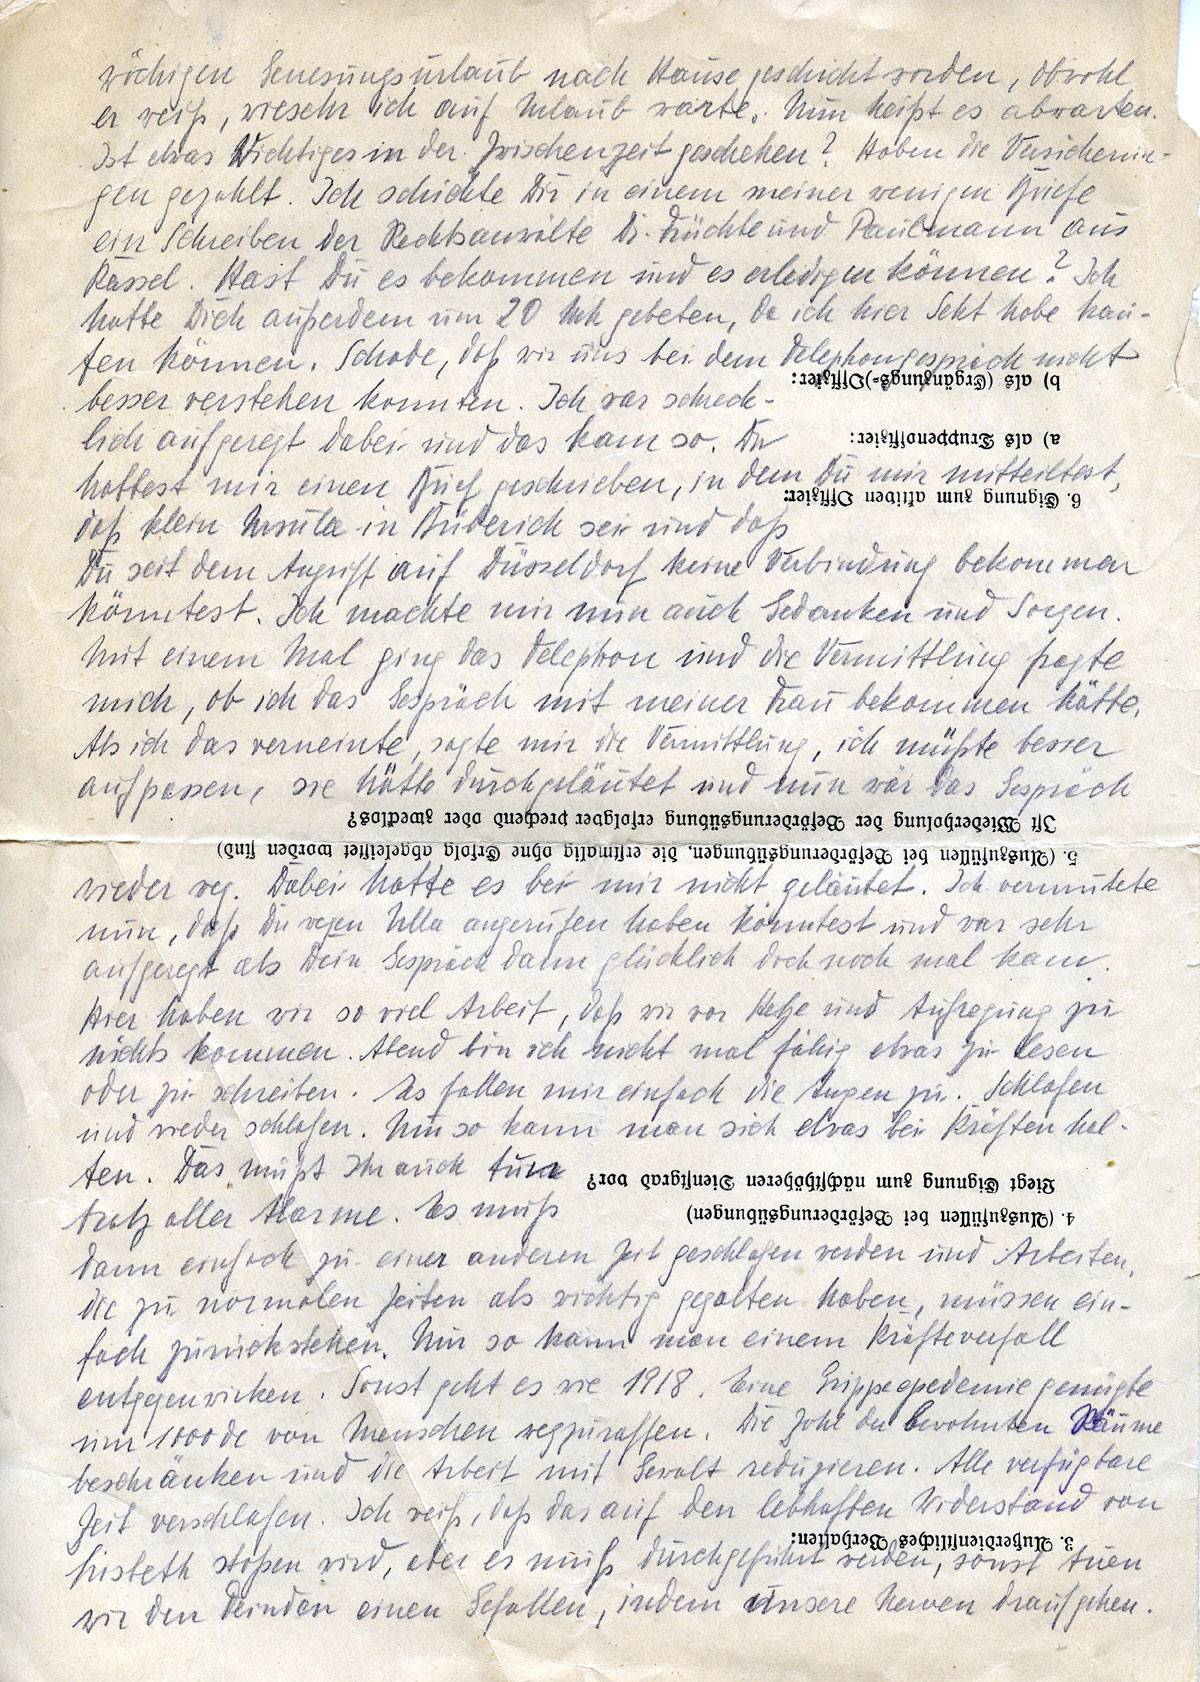 wöchigen Genesungsurlaub nach Hause geschickt worden, obwohl
er weiß, wiesehr ich auf Urlaub warte. Nun heißt es abwarten.
Ist etwas Wichtiges in der Zwischenzeit geschehen? Haben die Versicherun-
gen gezahlt. Ich schickte Dir in einem meiner wenigen Briefe
ein Schreiben der Rechtsanwälte Dr. und Paulmann aus
Kassel. Hast Du es bekommen und es erledigen können? Ich
hatte Dich außerdem um 20 gebeten, da ich hier Sekt habe kau-
fen können. Schade, daß wir uns bei dem Telephongespräch nicht
b) als (Ergänzungs-)Offizier:
besser verstehen konnten. Ich war schreck-
lich aufgeregt dabei und das kam so. Du
a) als Truppenoffizier:
hattest mir einen Brief geschrieben, in dem Du mir mitteiltest,
6. Eignung zum aktiven Offizier:
daß klein Ursula in Büderich sei und daß
Du seit dem Angriff auf Düsseldorf keine Verbindung bekommen
könntest. Ich machte mir nun auch Gedanken und Sorgen.
Mit einem Mal ging das Telephon und die Vermittlung fragte
mich, ob ich das Gespräch mit meiner Frau bekommen hätte.
Als ich das verneinte, sagte mir die Vermittlung, ich müßte besser
aufpassen, sie hätte durchgeläutet und nun wär das Gespräch
Ist Wiederholung der Beförderungsübung erfolgversprechend oder zwecklos?
5. (Auszufüllen bei Beförderungsübungen, die erstmalig ohne Erfolg abgeleistet worden sind)
wieder weg. Dabei hatte es bei mir nicht geläutet. Ich vermutete
nun, daß Du wegen Ulla angerufen haben könntest und war sehr
aufgeregt als Dein Gespräch dann glücklich doch noch mal kam.
Hier haben wir so viel Arbeit, daß wir vor Hetze und Aufregung zu
nichts kommen. Abend bin ich nicht mal fähig etwas zu lesen
oder zu schreiben. Es fallen mir einfach die Augen zu. Schlafen
und wieder schlafen. Nur so kann man sich etwas bei Kräften hal-
ten. Das müßt Ihr auch tun
Liegt Eignung zum nächsthöheren Dienstgrad vor?
trotz aller Alarme. Es muß
4. (Auszufüllen bei Beförderungsübungen)
dann einfach zu einer anderen Zeit geschlafen werden und Arbeiten,
die zu normalen Zeiten als wichtig gegolten haben, müssen ein-
fach zurückstehen. Nur so kann man einem Kräfteverfall
entgegenwirken. Sonst geht es wie 1918. Eine Grippeepedemie genügte
um 1000de von Menschen wegzuraffen. Die Zahl der bewohnten Räume
beschränken und die Arbeit mit Gewalt reduzieren. Alle verfügbare
Zeit verschlafen. Ich weiß, daß das auf den lebhaften Widerstand von
3. Außerdienstliches Verhalten:
Lisbeth stoßen wird, aber es muß durchgeführt werden, sonst tuen
wir den Feinden einen Gefallen, indem unsere Nerven draufgehen.